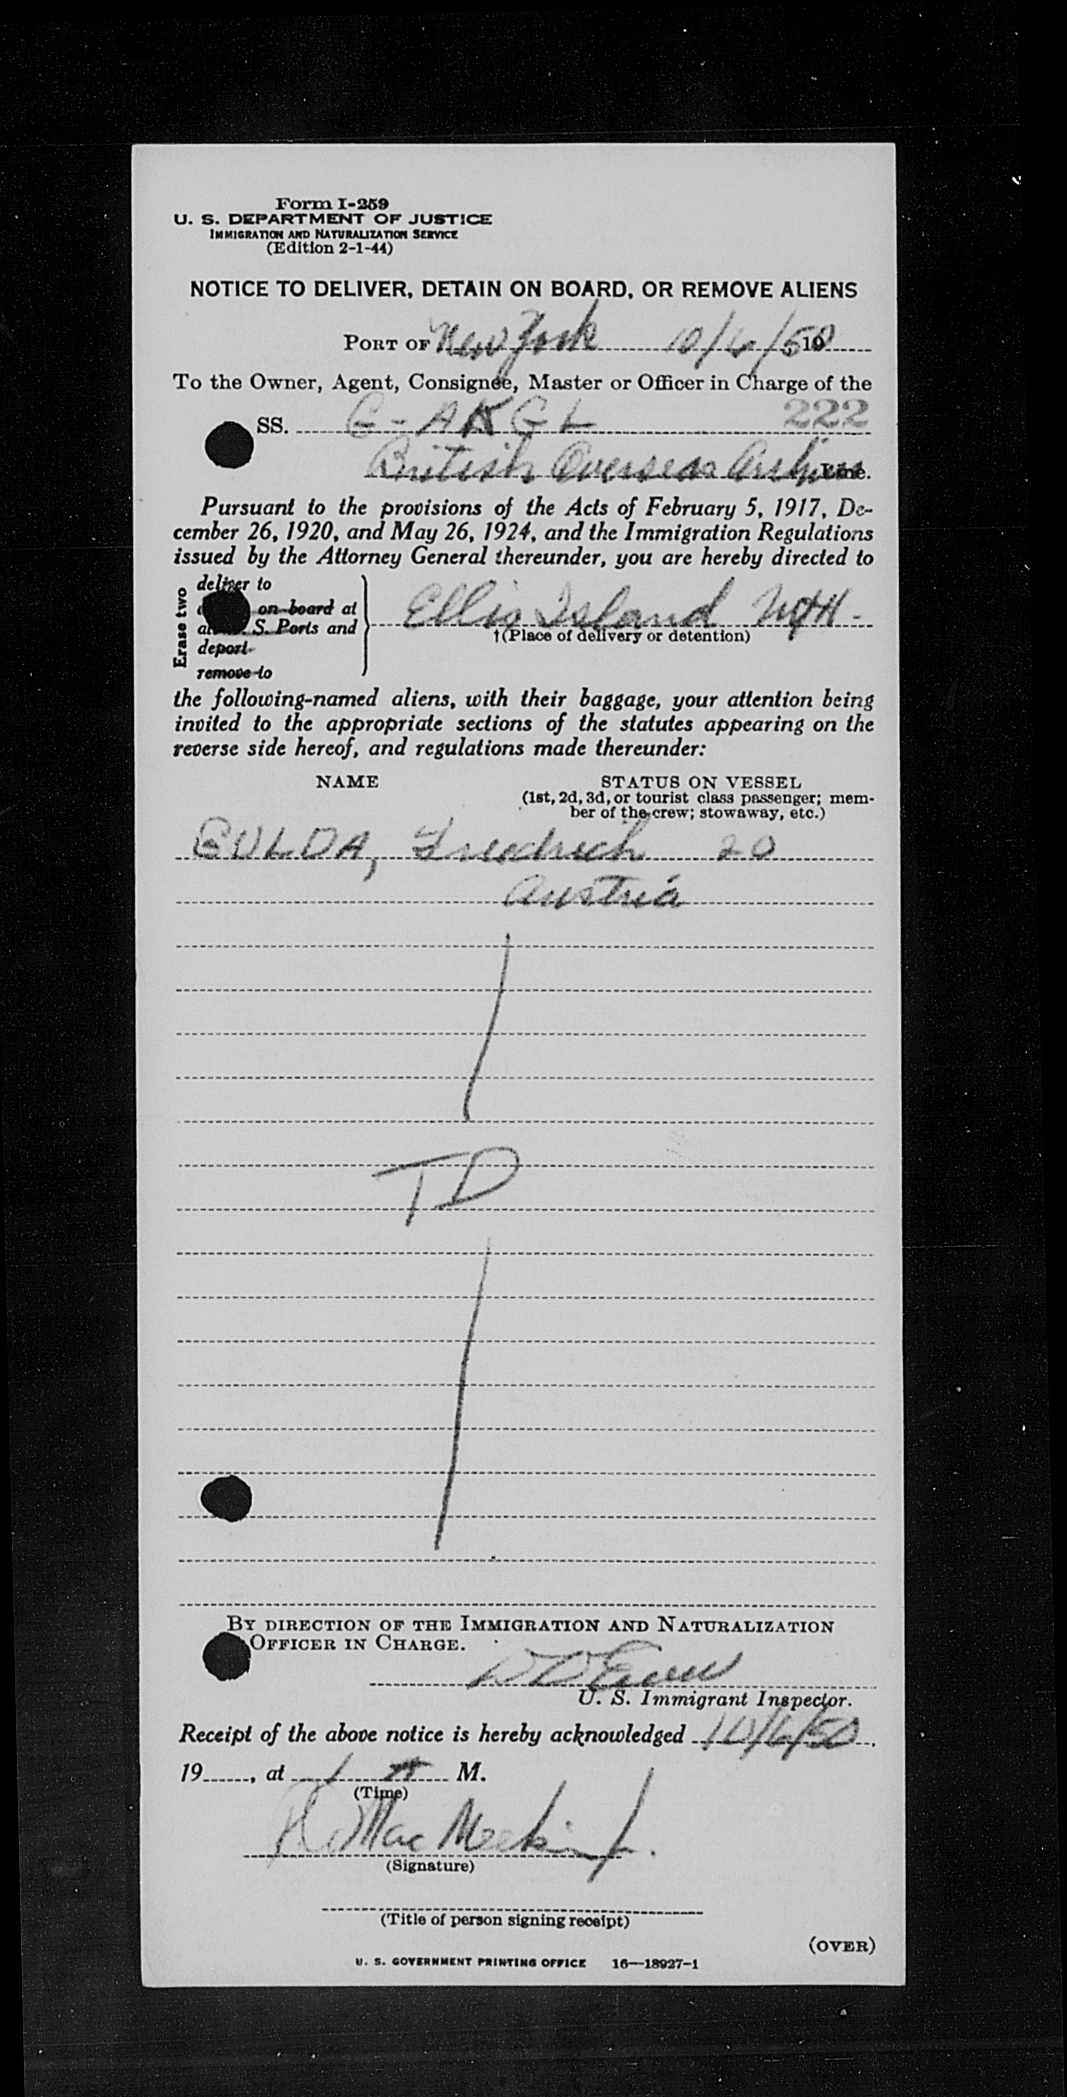 Form I-259
U. S. DEPARTMENT OF JUSTICE
IMMIGRATION AND NATURALIZATION SERVICE
(Edition 2-1-44)
NOTICE TO DELIVER, DETAIN ON BOARD, OR REMOVE ALIENS
PORT OF New York 10/6/50
To the Owner, Agent, Consignee, Master or Officer in Charge of the
SS. G-AKGL 222
British Overseas Airlines Line.
Pursuant to the provisions of the Acts of February 5, 1917, De-
cember 26, 1920, and May 26, 1924, and the Immigration Regulations
issued by the Attorney General thereunder, you are hereby directed to
Erase two
deliver to
on board at
S. Ports and
deport
remove to
Ellis Island
†(Place of delivery or detention)
the following-named aliens, with their baggage, your attention being
invited to the appropriate sections of the statutes appearing on the
reverse side hereof, and regulations made thereunder:
NAME STATUS ON VESSEL
(1st, 2d, 3d, or tourist class passenger; mem-
ber of the crew; stowaway, etc.)
GULDA, Friedrich 20
Austria
TD
BY DIRECTION OF THE IMMIGRATION AND NATURALIZATION
OFFICER IN CHARGE.
U. S. Immigrant Inspector.
Receipt of the above notice is hereby acknowledged 10/6/50,
19, at 1 M.
(Time)
(Signature)
(Title of person signing receipt)
(OVER)
U. S. GOVERNMENT PRINTING OFFICE 16—18927-1